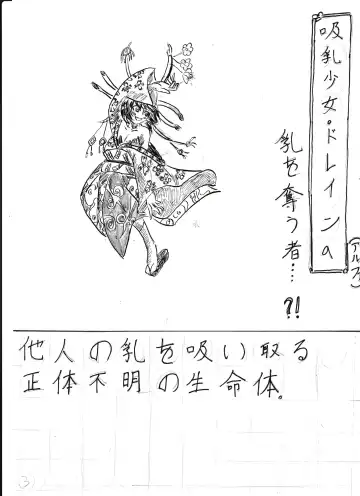 吸乳少女・ドレインα
(アルファ)
乳を奪う者…?!
他人の乳を吸い取る
正体不明の生命体。
3